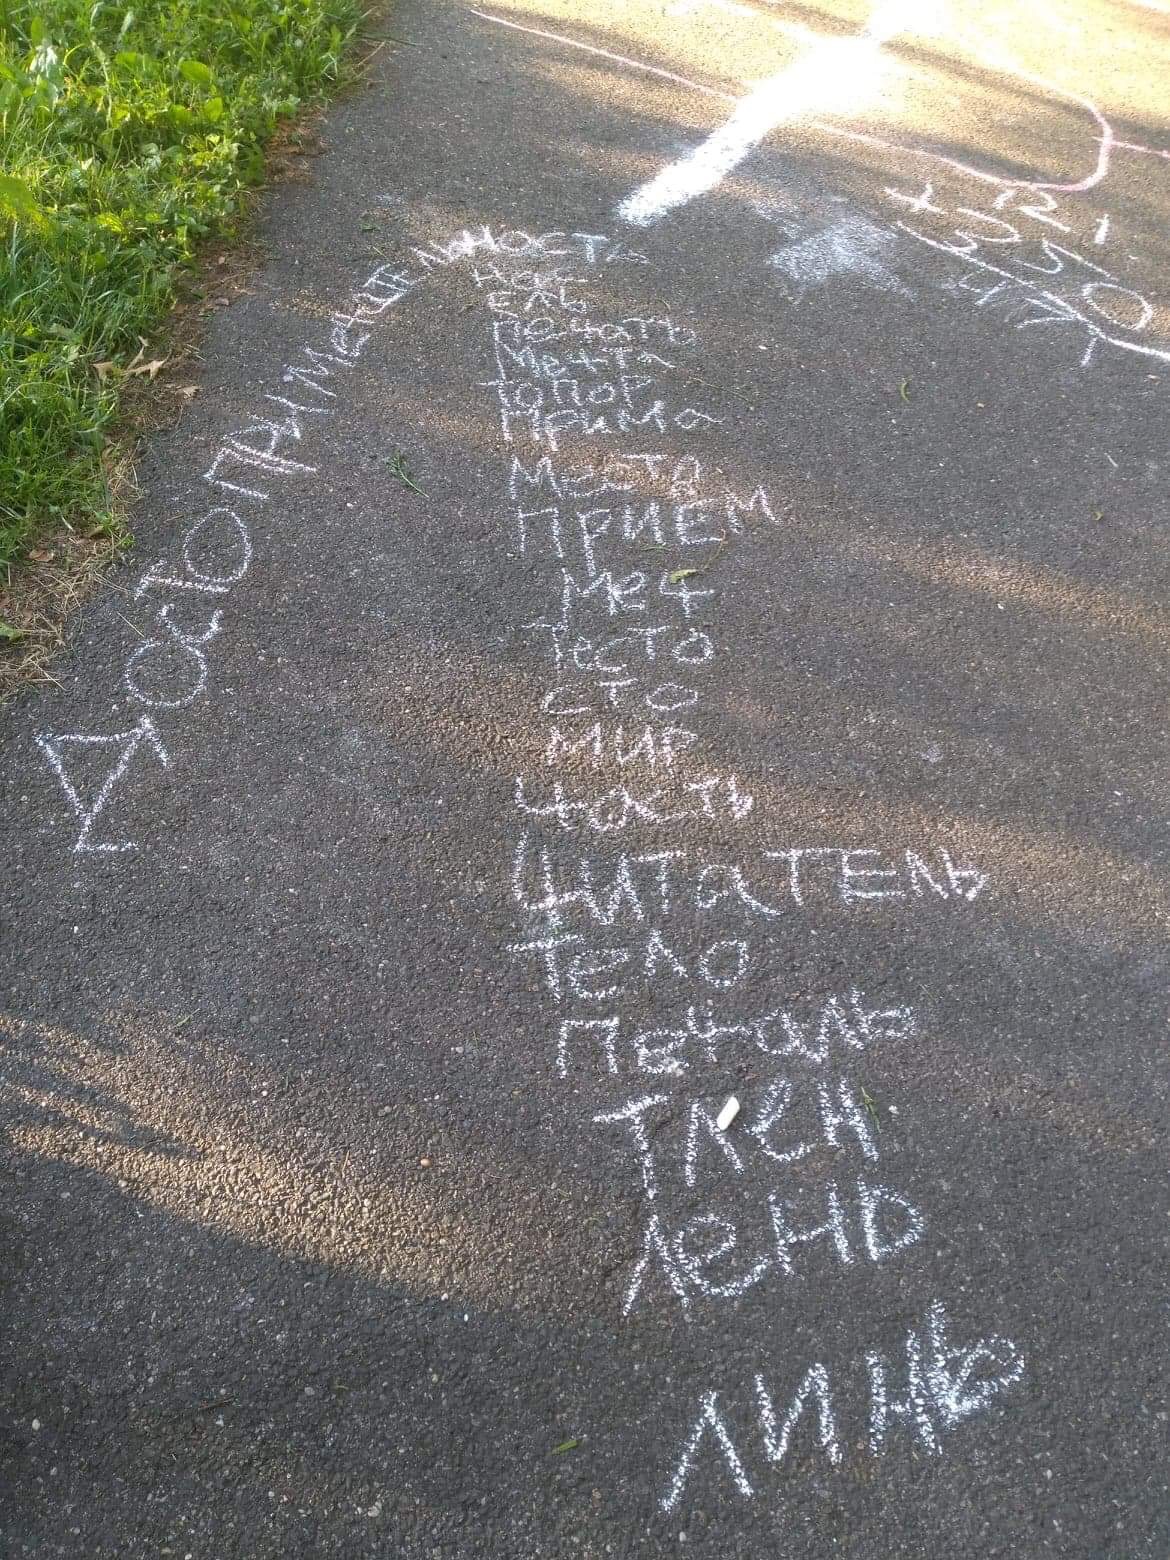 ДОСТОПРИМечатЕЛЬНОСТЬ
Нос
ель
Печать
Мечта
Топор
Прима
Места
ПРИЕМ
Меч
Тесто
Сто
Мир
Часть
ЧитаТЕЛЬ
Тело
Печаль
Тлен
ЛеНЬ
ЛИНЬ